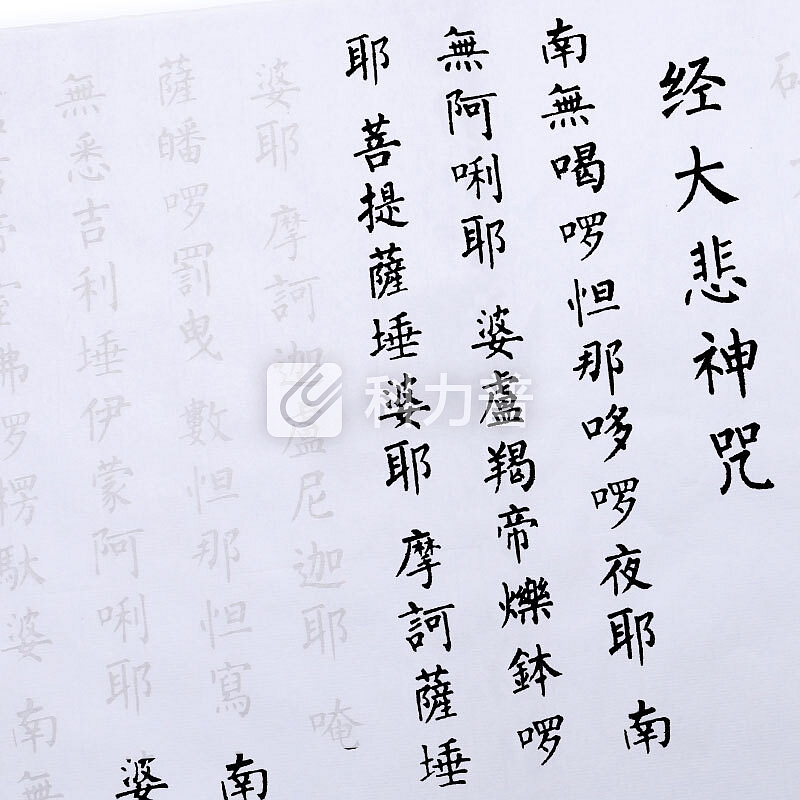 经大悲神咒
南無喝啰怛那哆啰夜耶 南
無阿唎耶 婆盧羯帝爍鉢啰
耶 菩提薩埵婆耶 摩訶薩埵
婆耶 摩訶迦盧尼迦耶 唵
薩皤啰罰曳 數怛那怛寫 南
無悉吉利埵伊蒙阿唎耶 婆
室佛啰楞馱婆 南無
科力普